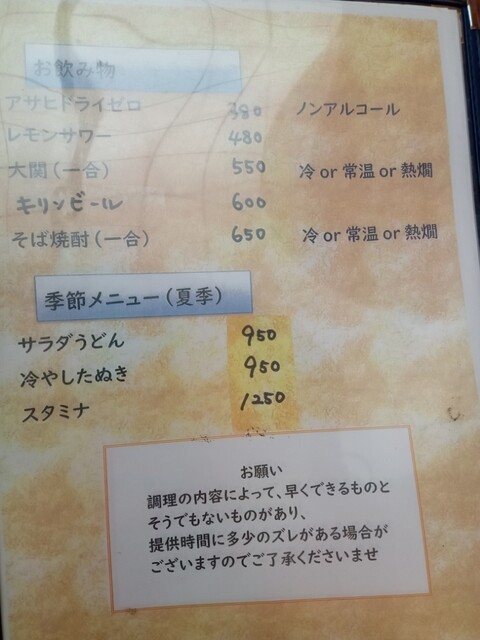 お飲み物
アサヒドライゼロ 380 ノンアルコール
レモンサワー 480
大関(一合) 550 冷 or 常温 or 熱燗
キリンビール 600
そば焼酎(一合) 650 冷 or 常温 or 熱燗
季節メニュー(夏季)
サラダうどん 950
冷やしたぬき 950
スタミナ 1250
お願い
調理の内容によって、早くできるものと
そうでもないものがあり、
提供時間に多少のズレがある場合が
ございますのでご了承くださいませ